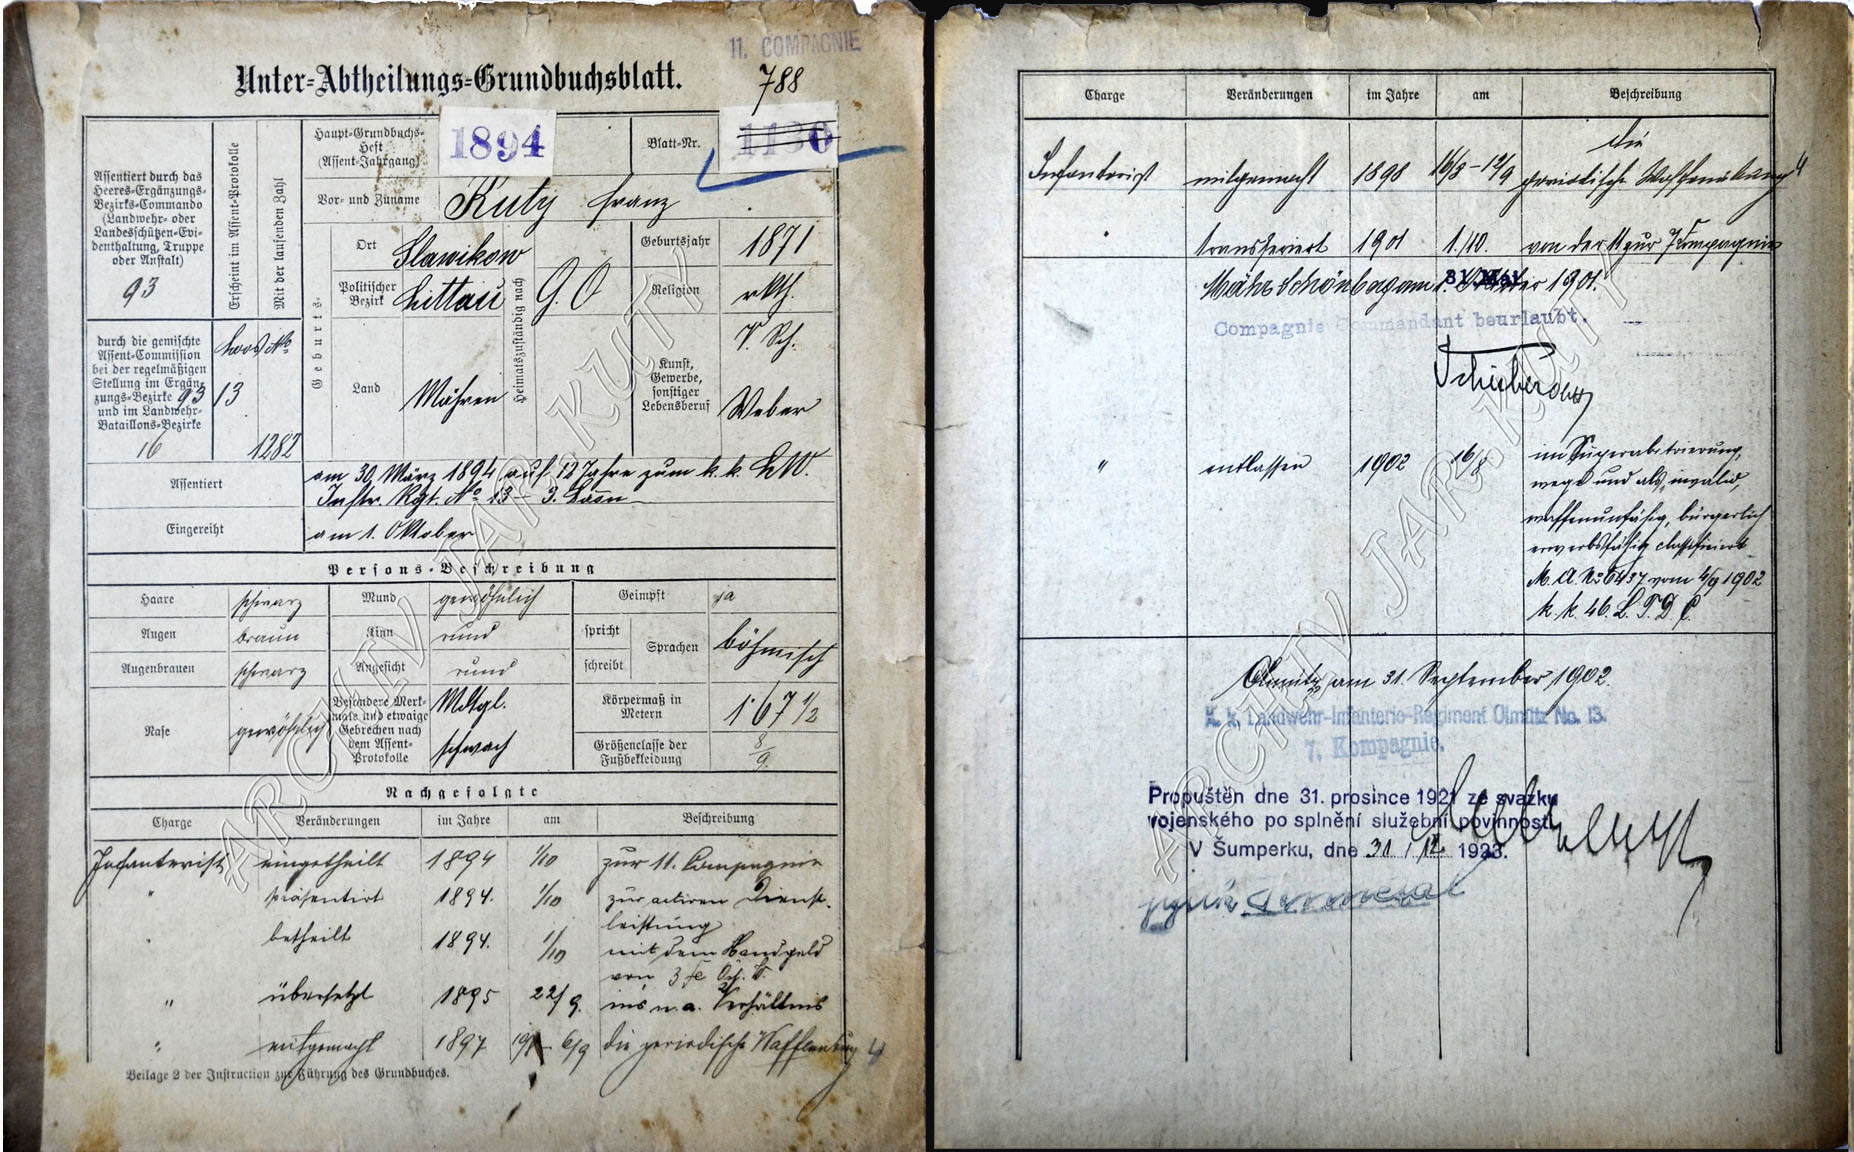 11. COMPAGNIE
Unter-Abtheilungs-Grundbuchsblatt.
788
Assentiert durch das
Heeres-Ergänzungs-
Bezirks-Commando
(Landwehr- oder
Landesschützen-Evi-
denthaltung, Truppe
oder Anstalt)
93
Erscheint im Assent-Protokolle
Mit der laufenden Zahl
Haupt-Grundbuchs-
Heft
(Assent-Jahrgang)
1894
Blatt-Nr.
Vor- und Zuname
Kuty Franz
Geburts-
Ort
Slawikow
Politischer
Bezirk
Littau
Land
Mähren
Heimatszuständig nach
G. O
Geburtsjahr
1871
Religion
rkth.
Kunst,
Gewerbe,
sonstiger
Lebensberuf
V. Sch.
Weber
durch die gemischte
Assent-Commission
bei der regelmäßigen
Stellung im Ergän-
zungs-Bezirke 93
und im Landwehr-
Bataillons-Bezirke
16
Loos No
13
1282
Assentiert
am 30. März 1894 auf 12 Jahre zum k. k. LW.
Inftr. Rgt. No 13 - 3. Baon
Eingereiht
am 1. Oktober
Persons-Beschreibung
Haare schwarz
Mund gewöhnlich
Geimpft ja
Augen braun
Kinn rund
spricht
schreibt
Sprachen
böhmisch
Augenbrauen schwarz
Angesicht rund
Nase gewöhnlich
Besondere Merk-
male und etwaige
Gebrechen nach
dem Assent-
Protokolle
Mdtgl.
schwach
Körpermaß in
Metern
1·67 1/2
Größenclasse der
Fußbekleidung
8/9
Nachgefolgte
Charge Veränderungen im Jahre am Beschreibung
Infanterist eingetheilt 1894 1/10 zur 11. Compagnie
" präsentirt 1894. 1/10 zur activen Dienst-
leistung
" betheilt 1894. 1/10 mit dem Handgeld
von 3
" übersetzt 1895 22/9. ins n. a. Verhältnis
" mitgemacht 1897 6/9 die periodische Waffenübung 4
Beilage 2 der Instruction zur Führung des Grundbuches.
Charge Veränderungen im Jahre am Beschreibung
die
Infanterist mitgemacht 1898 16/8 - 12/9 periodische Waffenübung 4
" transferiert 1901 1./10. von der 11 zur 7 Compagnie
Mähr. Schönberg am 1901.
Compagnie Commandant beurlaubt.
" entlassen 1902 16/8 im Superarbitrierung,
wege und als „invalid,
waffenunfähig, bürgerlich
erwerbsfähig classificiert
M. A. No 6437 vom 4/9 1902
k. k. 46. L. T. D. C.
Olmütz am 31. September 1902.
K. k. Landwehr-Infanterie-Regiment Olmütz No. 13.
7. Kompagnie.
Propuštěn dne 31. prosince 1921 ze svazku
vojenského po splnění služební povinnosti.
V Šumperku, dne 31/12. 1923.
ARCHIV JAR. KUTÝ
ARCHIV JAR. KUTÝ